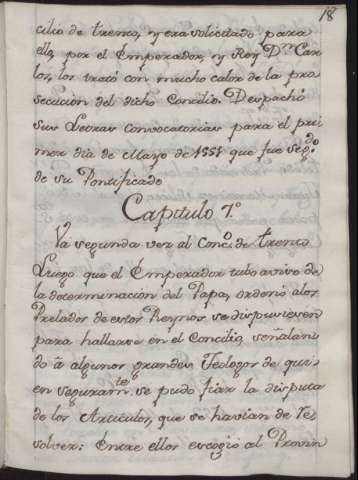 18
cilio de trento, y era solicitado para
ello, por el Emperador, y Rey Dn. Car
los, los trató con mucho calor de la pro
secucion del dicho Concilio. Despachó
sus Letras convocatorias para el pri
mer dia de Marzo de 1551 que fue segdo.
de su Pontificado
Capitulo 7º
Va segunda vez al Conco. de trento
Luego que el Emperador tubo aviso de
la determinacion del Papa, ordenó a los
Prelados de estos Reynos se dispusiesen
para hallarse en el Concilio, señalan
do á algunos grandes Teologos de qui
en seguramte. se pudo fiar la disputa
de los Articulos, que se havian de re
solver: Entre ellos escogió al Provin